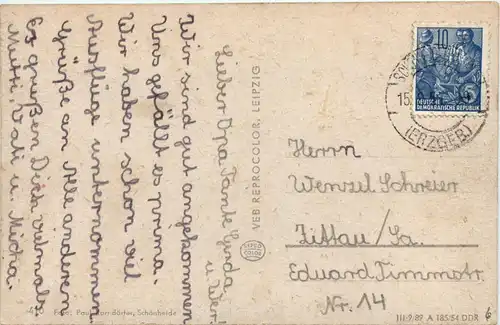 Lieber Opa Tante Gerda
u. Uwe!
Wir sind gut angekommen
Uns gefällt es prima.
Wir haben schon viel
Ausflüge unternommen.
Grüße an Alle anderen
Es grüßen Dich vielmals
Mutti, Vati u. Micha.
VEB REPROCOLOR, LEIPZIG
REPRO
COLOR
10
DEUTSCHE
DEMOKRATISCHE REPUBLIK
15.
(ERZGEB)
Herrn
Wenzel Schreier
Zittau/Sa.
Eduard Timmstr.
Nr. 14
Foto: Paul Barrdörfer, Schönheide
III-9-89 A 185/54 DDR
6